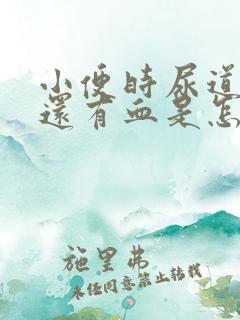 小便時尿道
還有血是怎
施里弗
未经同意禁止转载